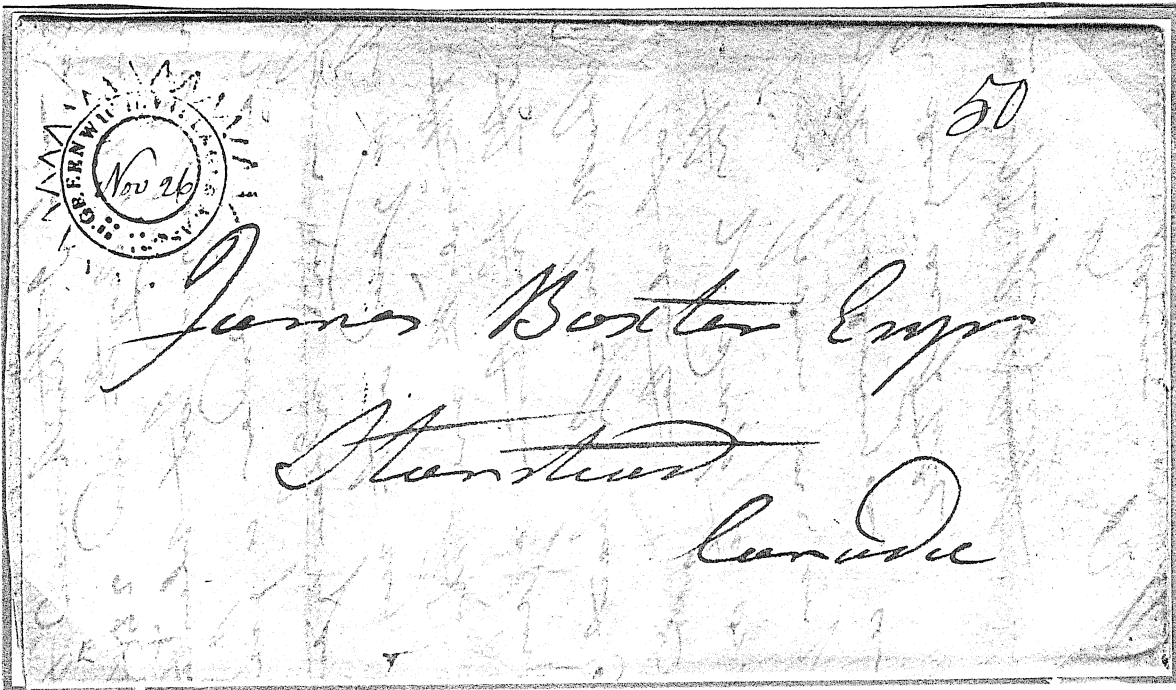 GREENWICH VILLAGE MAS
Nov 26
50
James Baxter Esqr
Stanstead
Canada